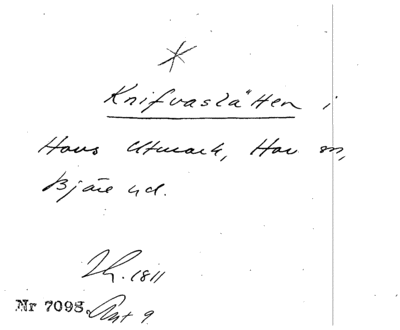 *
Knifvaslätten i
Hovs Utmark, Hov sn,
Bjäre hd.
1811
Nr 7098. Akt 9